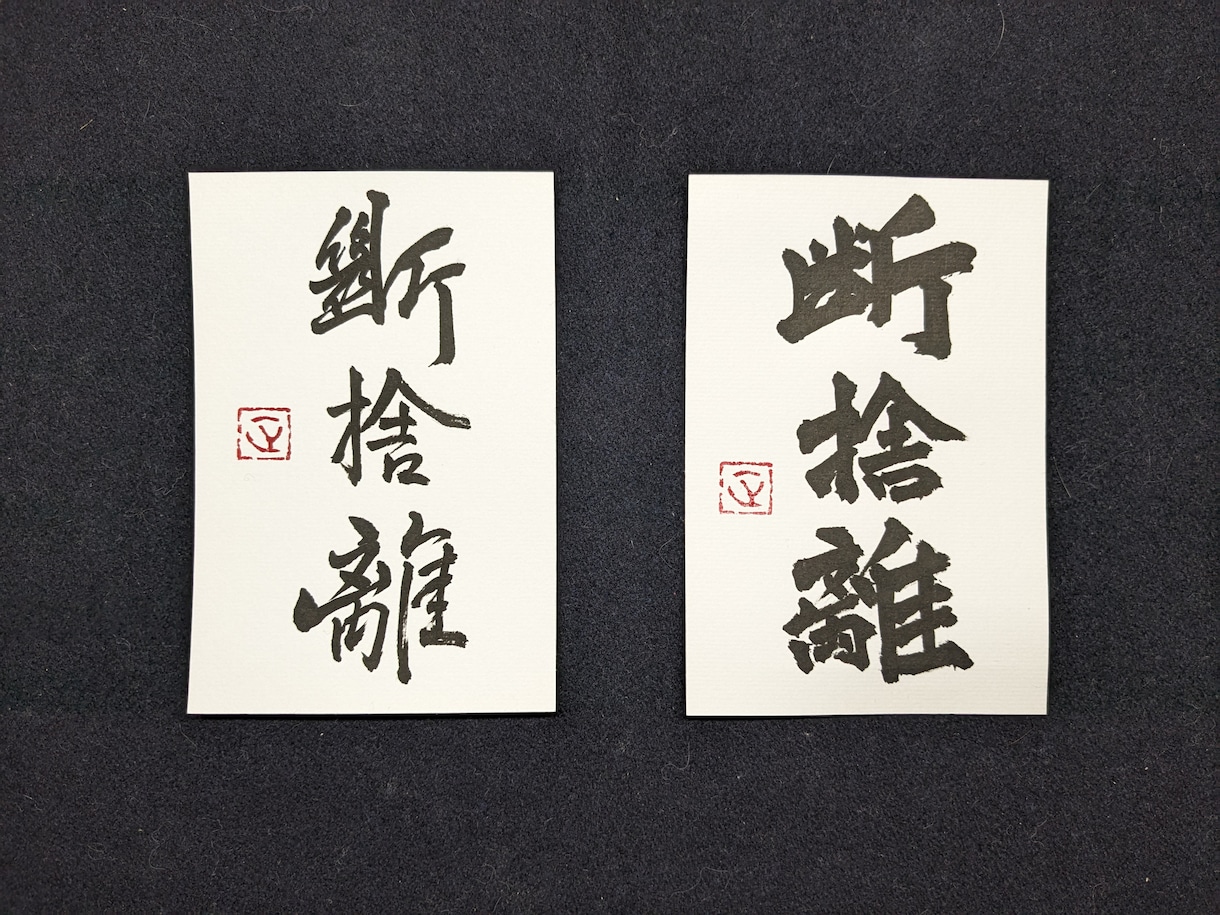 斷捨離
断捨離